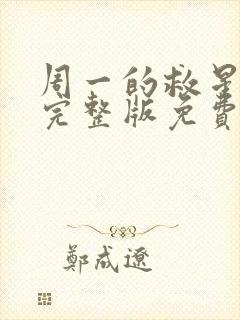 周一的救星
完整版免費
鄭成遼